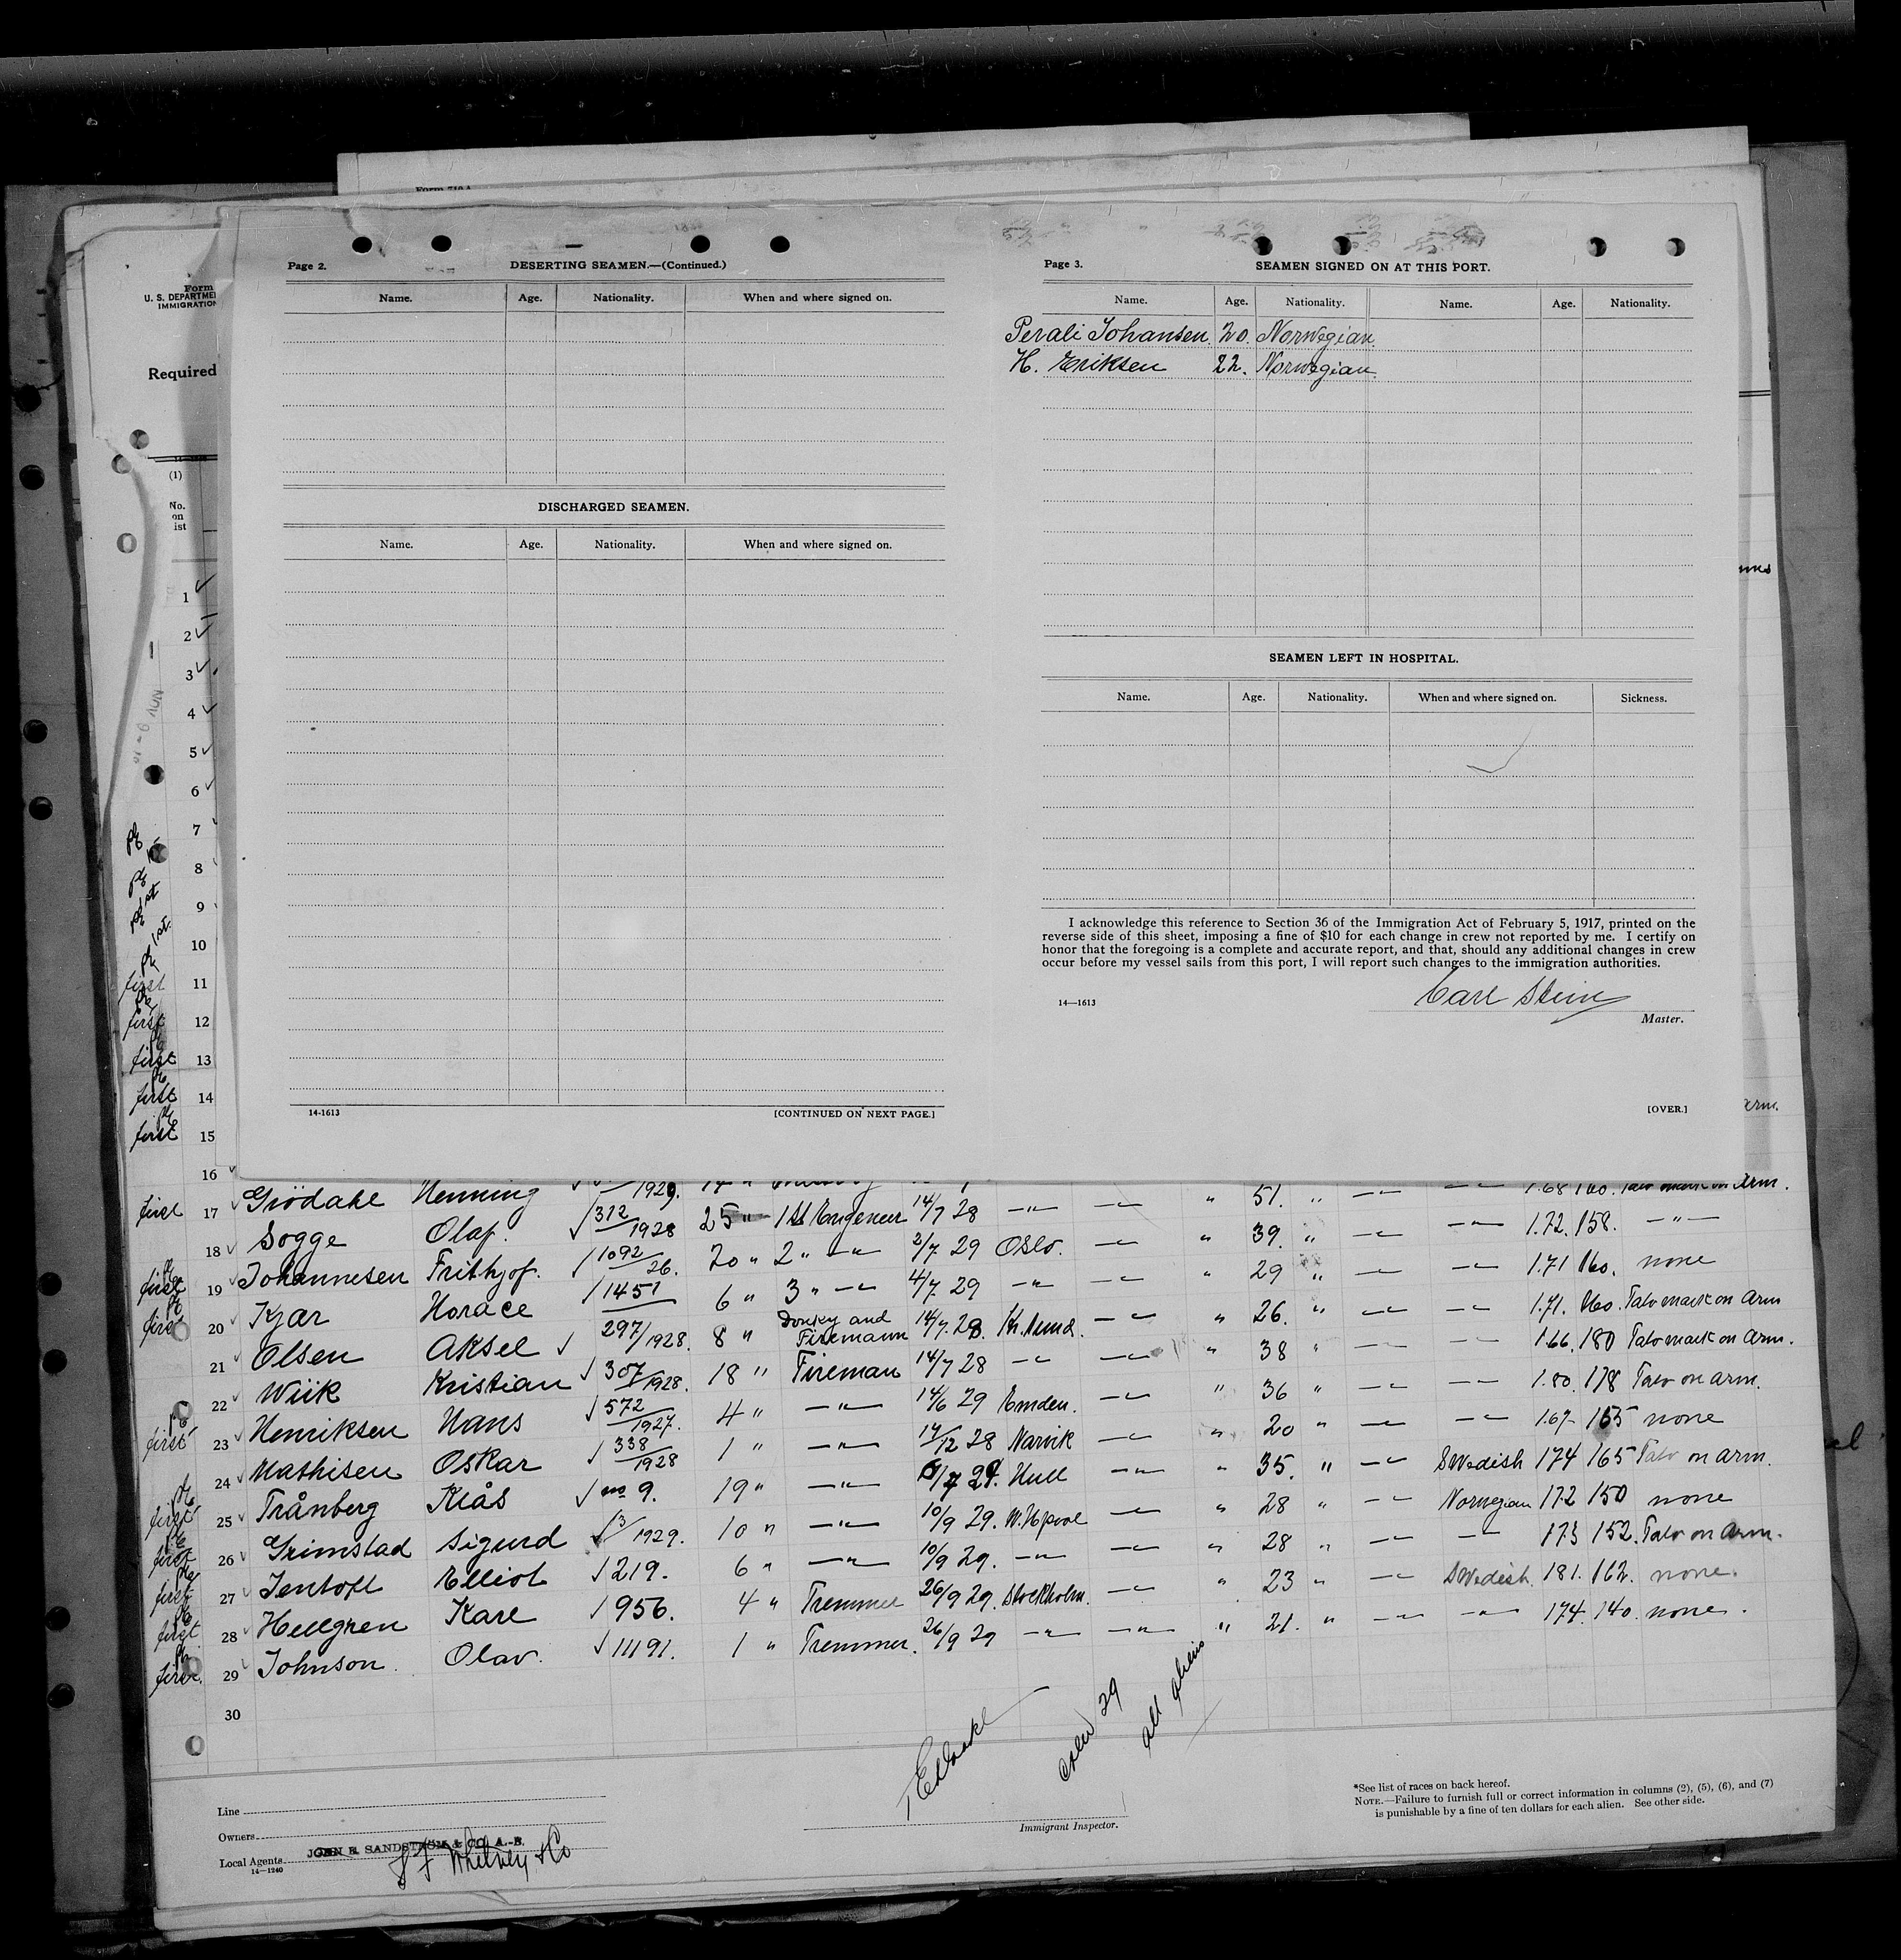 Form
U. S. DEPARTME
IMMIGRATION
Required
(1)
No.
on
ist
Page 2.
DESERTING SEAMEN.—(Continued.)
Name. Age. Nationality. When and where signed on.
DISCHARGED SEAMEN.
Name. Age. Nationality. When and where signed on.
14-1613
[CONTINUED ON NEXT PAGE.]
Page 3.
SEAMEN SIGNED ON AT THIS PORT.
Name. Age. Nationality. Name. Age. Nationality.
Perali Johansen 20. Norwegian.
H. Eriksen 22. Norwegian.
SEAMEN LEFT IN HOSPITAL.
Name. Age. Nationality. When and where signed on. Sickness.
I acknowledge this reference to Section 36 of the Immigration Act of February 5, 1917, printed on the
reverse side of this sheet, imposing a fine of $10 for each change in crew not reported by me. I certify on
honor that the foregoing is a complete and accurate report, and that, should any additional changes in crew
occur before my vessel sails from this port, I will report such changes to the immigration authorities.
14—1613
Carl Stein
Master.
[OVER.]
1
2
3
4
5
6
7
8
9
10
first 11
first 12
first 13
first 14
first 15
16
first 17 Grödahl Henning 1929. 51. " 1.68 160. arm.
18 Sogge Olaf. 312/1928 25 " 1st Engeneer 14/7 28 —"— " 39. " 1.72. 158. —"—
first 19 Johannesen Frithjof. 1092/26. 20 " 2 " —"— 2/7 29 Oslo. " 29 " 1.71 160. none
first 20 Kjær Horace 1451 6 " 3 " —"— 4/7 29 —"— " 26. " 1.71. 160. Tatv mark on arm
21 Olsen Aksel 297/1928. 8 " Donky and Firemann 14/7. 28. " 38 " 1.66. 180 Tatv mark on arm.
22 Wiik Kristian 307/1928. 18 " Fireman 14/7 28 —"— " 36 " 1.80. 178 Tatv on arm.
first 23 Henriksen Hans 572/1927. 4 " —"— 14/6 29 Emden. " 20 " 1.67 165 none
24 Mathisen Oskar 338/1928 1 " —"— 14/12 28 Narvik " 35. " Swedish 174 165 Tatv on arm.
first 25 Trånberg Klås no 9. 19 " —"— 29. Hull " 28 " Norwegian 172 150 none
first 26 Grimstad Sigurd 3/1929. 10 " —"— 10/9 29. W. Hpool " 28 " 173 152. Tatv on arm.
first 27 Jentoft Elliot 219. 6 " —"— 10/9 29. —"— " 23 " Swedish. 181. 162. none.
first 28 Hellgren Karl 956. 4 " Tremmer 26/9 29. Stockholm. " 21. " 174. 140. none.
first 29 Johnson Olav. 11191. 1 " Tremmer. 26/9 29 —"—
30
Crew 29
all aliens
Line
Owners
Local Agents JOHN R. SANDSTRÖM & CO. A.-B.
14—1240
S F Whitney & Co
Immigrant Inspector.
*See list of races on back hereof.
NOTE.—Failure to furnish full or correct information in columns (2), (5), (6), and (7)
is punishable by a fine of ten dollars for each alien. See other side.